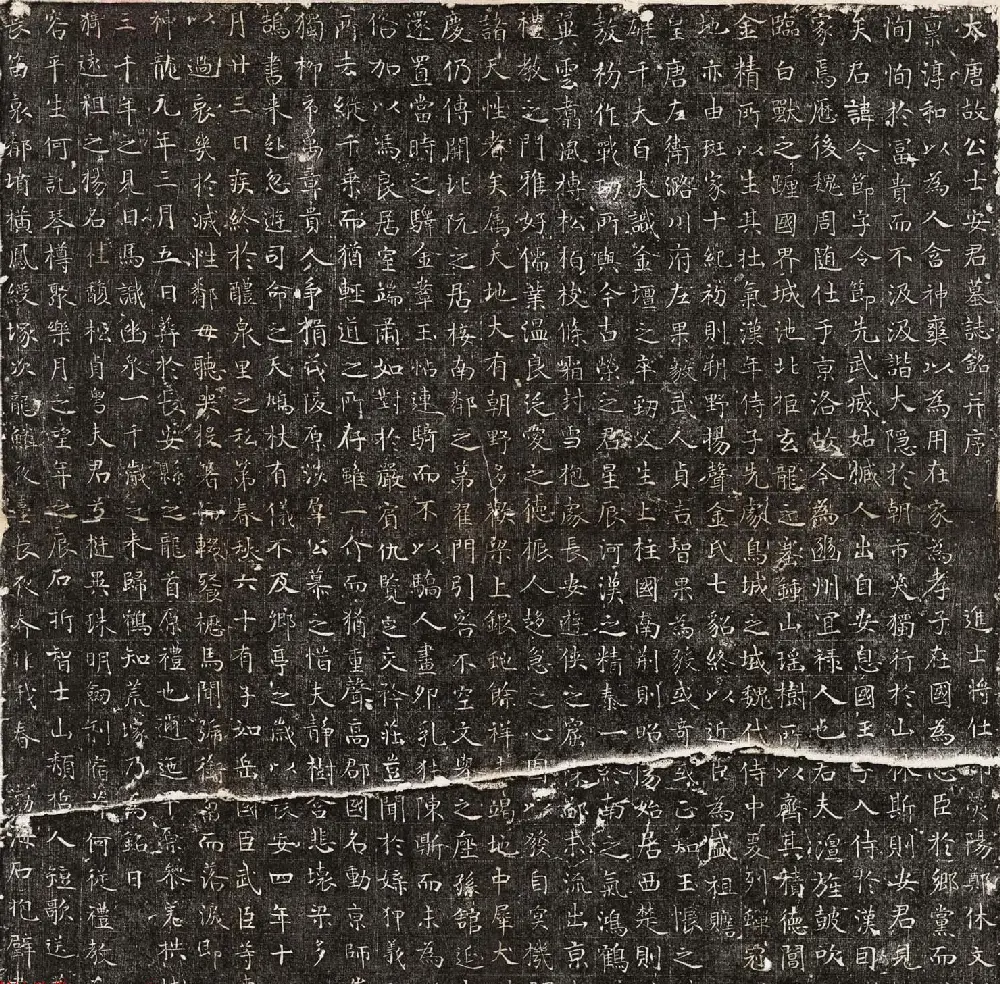 大唐故公士安君墓誌銘并序 進士將仕郎滎陽鄭休文
稟淳和以為人含神爽以為用在家為孝子在國為忠臣於鄉黨而
恂恂於富貴而不汲汲諧大隱於朝市笑獨行於山林斯則安君見
矣君諱令節字令節先武威姑臧人出自安息國王子入侍於漢因
家焉歷後魏周隨仕于京洛故今為豳州宜祿人也若夫澶漫皷吹
臨白獸之躔國界城池北拒玄龍之塞鍾山瑤樹所以齊其積德閶
金精所以生其壯氣漢年侍子先處烏城之域魏代侍中爰列蟬冠
地亦由班家十紀初則朔野揚聲金氏七貂終以近臣為盛祖瞻
皇唐左衛潞川府左果毅武人貞吉智果為毅或奇或正知王帳之
雄千夫百夫識金壇之卒勁父生上柱國南荆則昭陽始居西楚則
敖初作戰功所與今古榮之君星辰河漢之精泰一終南之氣鴻鶴
冀雲翥風摶松柏枝條霜封雪抱處長安遊俠之窟深鄙末流出京
禮教之門雅好儒業溫良泛愛之德振人趍急之心固以發自冥機
諸天性者矣屬天地大有朝野多歡梁上銀虵餘祥未竭地中犀犬
慶仍傳開北阮之居接南鄰之第翟門引客不空文舉之座孫館延
還置當時之驛金鞍玉怗連騎而不以驕人畫卯乳犼陳鼎而未為
俗加以馮良居室端肅如對於嚴賓仇覽定交矜莊豈聞於媟狎義
所去縱千乘而猶輕道之所存雖一介而猶重聲高郡國名動京師
獨柳市萬章貴人爭揖茂陵原涉群公慕之惜夫靜樹含悲壞梁多
鵠書来赴忽遊司命之天鳩杖有儀不及鄉亭之歲以長安四年十
月廿三日疾終於醴泉里之私第春秋六十有子如岳國臣武臣等
以過哀幾於滅性鄰母聽哭投箸而輟飡櫪馬聞號銜芻而落淚即
神龍元年三月五日葬於長安縣之龍首原禮也邐迤平原參差拱
三千年之見日馬識幽泉一千歲之来歸鶴知荒塚乃為銘曰
猗遠祖之揚名桂馥松貞粵大君之挺異珠明劒利脩幹何從禮教
容平生何託琴樽聚樂月之空年之痕石折智士山頹哲人短歌送
長笛哀鄰墳橫鳳綬塚次龍鱗夜臺長夜